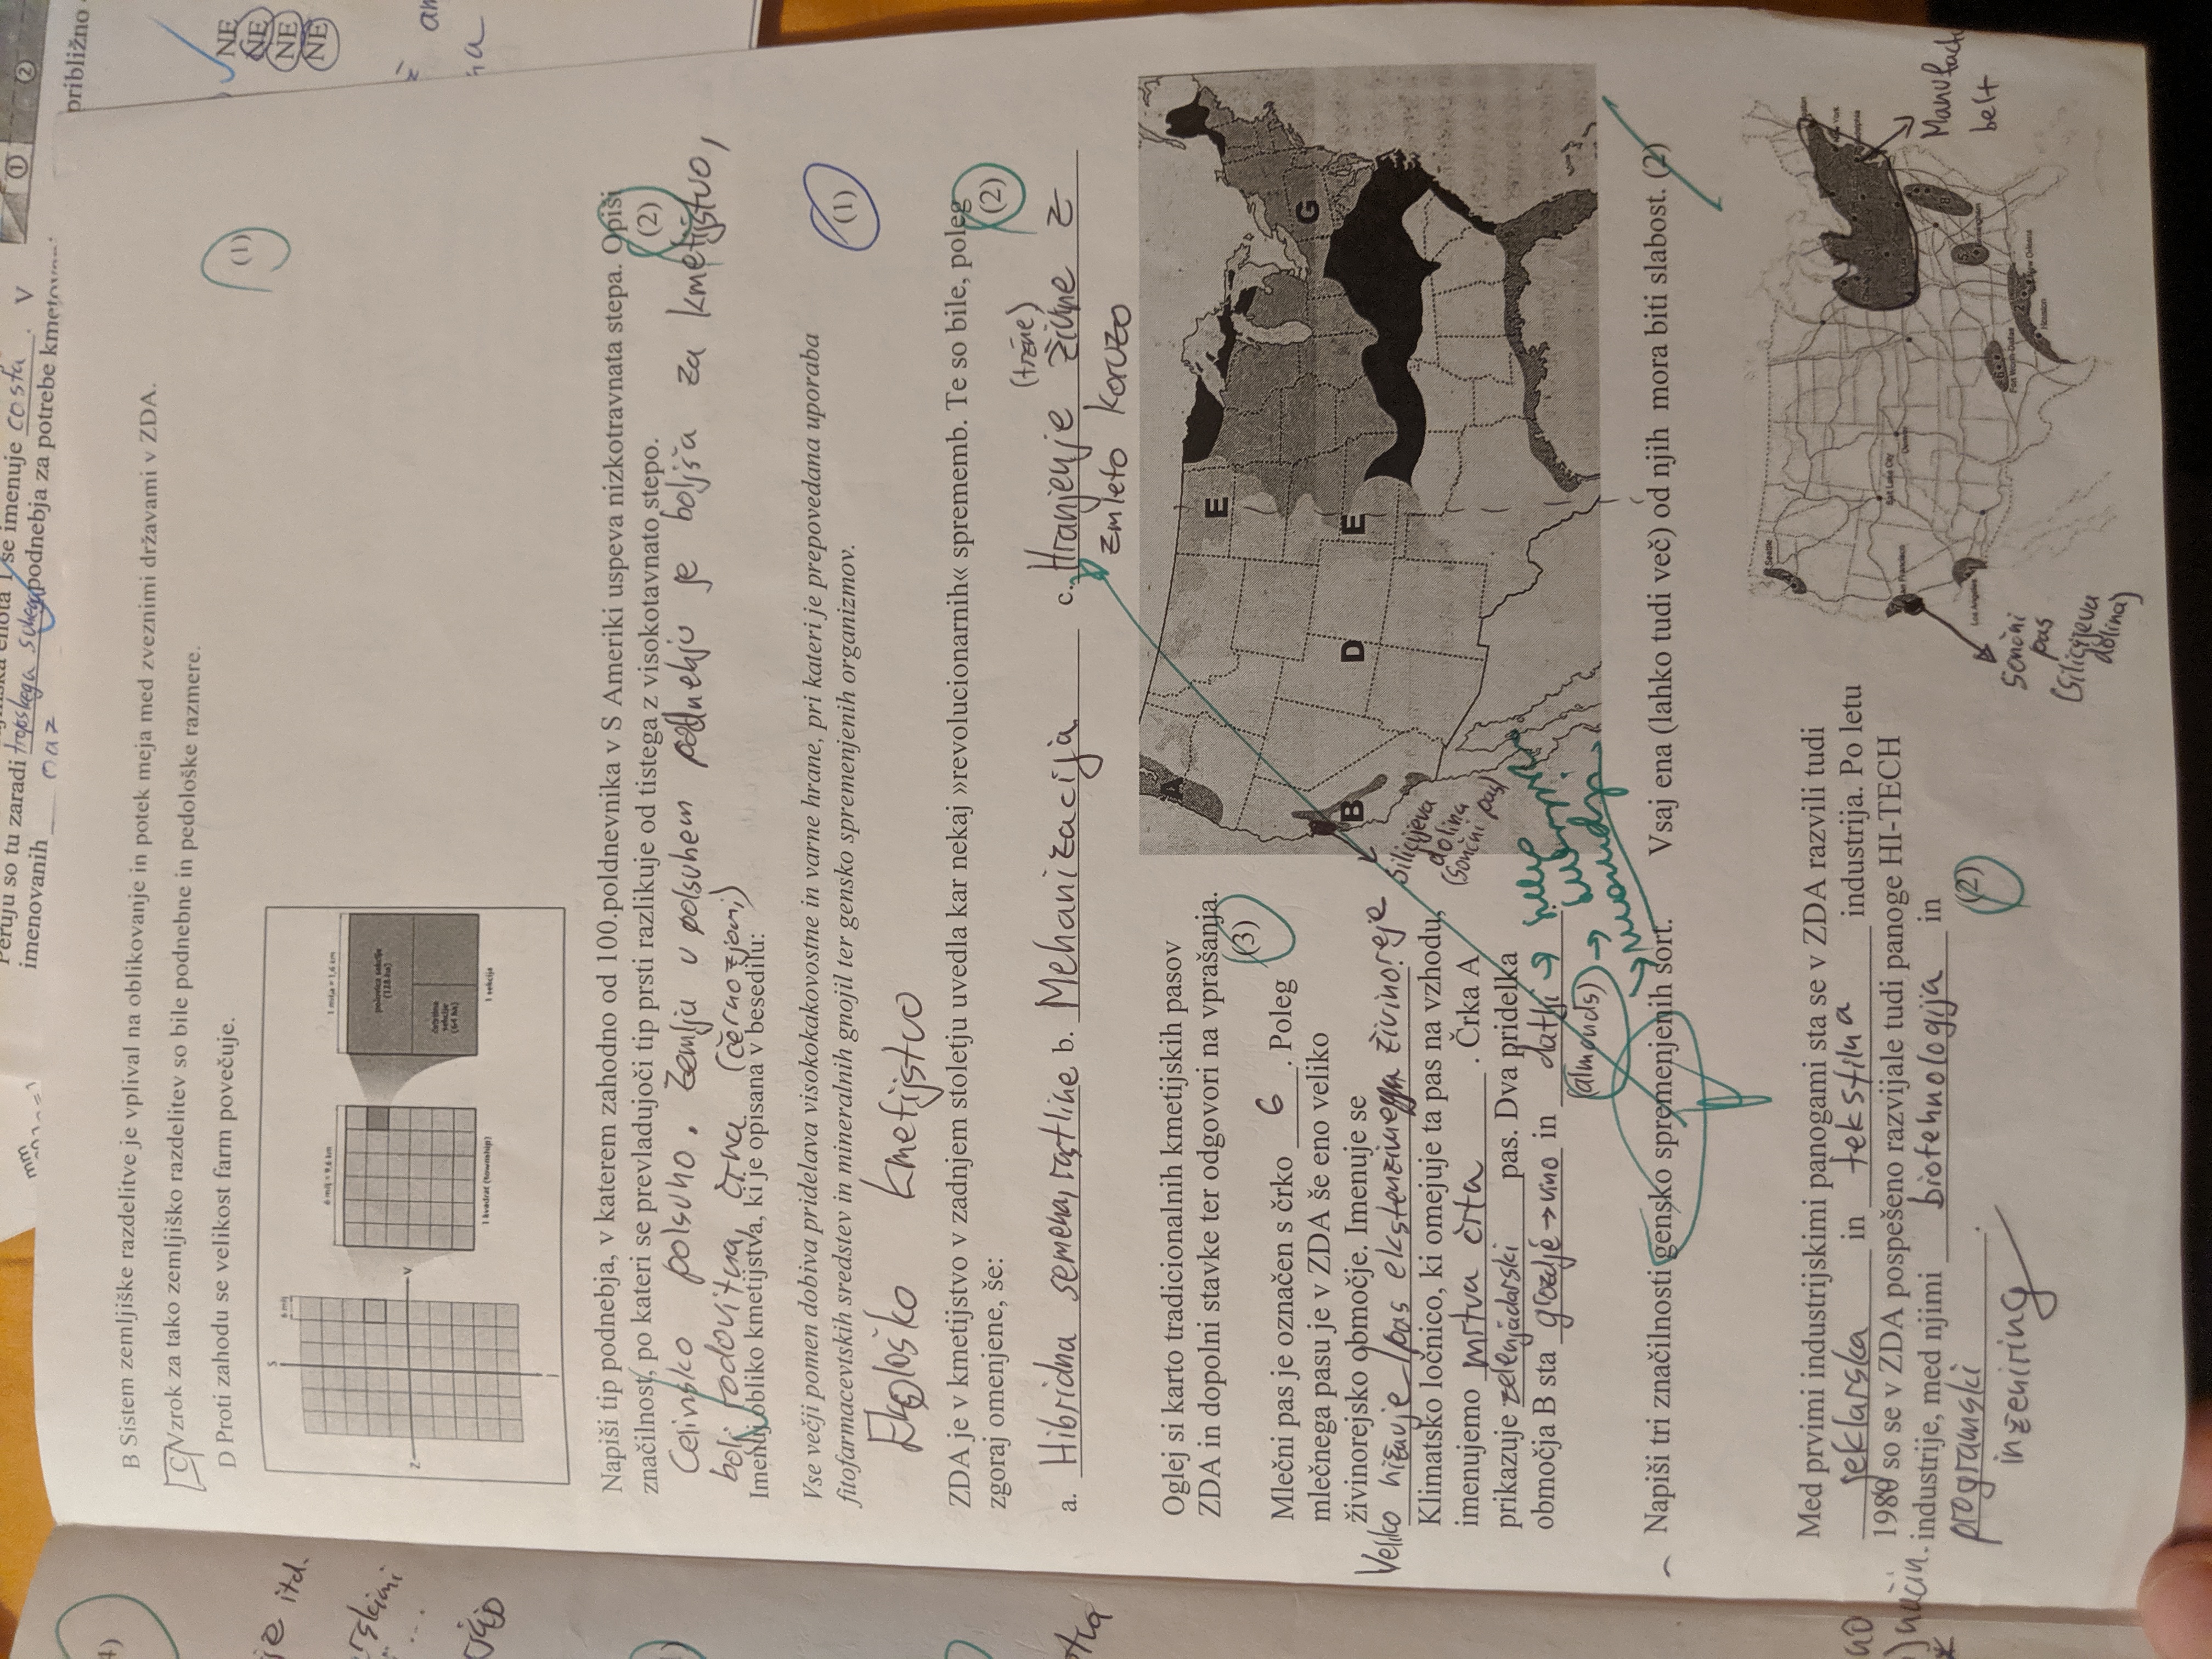 Peruju so tu zaradi tropskega suhega podnebja za potrebe
se imenuje costa. V
imenovanih oaz
približno
NE
NE
NE
NE
B Sistem zemljiške razdelitve je vplival na oblikovanje in potek meja med zveznimi državami v ZDA.
C Vzrok za tako zemljiško razdelitev so bile podnebne in pedološke razmere.
D Proti zahodu se velikost farm povečuje.
(1)
S
6 milj
Z
V
J
6 milj = 9,6 km
1 kvadrat (township)
1 milja = 1,6 km
polovica sekcije
(128 ha)
četrtina
sekcije
(64 ha)
1 sekcija
Napiši tip podnebja, v katerem zahodno od 100.poldnevnika v S Ameriki uspeva nizkotravnata stepa. Opiši
značilnost, po kateri se prevladujoči tip prsti razlikuje od tistega z visokotavnato stepo. (2)
Celinsko polsuho. Zemlja v polsuhem podnebju je boljša za kmetijstvo,
bolj rodovitna, črna (černozjomi)
Imenuj obliko kmetijstva, ki je opisana v besedilu:
Vse večji pomen dobiva pridelava visokokakovostne in varne hrane, pri kateri je prepovedana uporaba
fitofarmacevtskih sredstev in mineralnih gnojil ter gensko spremenjenih organizmov. (1)
Ekološko kmetijstvo
ZDA je v kmetijstvo v zadnjem stoletju uvedla kar nekaj »revolucionarnih« sprememb. Te so bile, poleg
zgoraj omenjene, še: (2)
a. Hibridna semena, rastline b. Mehanizacija c. Hranjenje živine z
zmleto koruzo
Oglej si karto tradicionalnih kmetijskih pasov
ZDA in dopolni stavke ter odgovori na vprašanja.
(3)
Mlečni pas je označen s črko G. Poleg
mlečnega pasu je v ZDA še eno veliko
živinorejsko območje. Imenuje se
Veliko nižavje/pas ekstenzivne živinoreje.
Klimatsko ločnico, ki omejuje ta pas na vzhodu,
imenujemo mrtva črta. Črka A
prikazuje zelenjadarski pas. Dva pridelka
območja B sta grozdje → vino in datlji
(almonds) → mandlji
A
B
D
E
E
G
Silicijeva
dolina
(Sončni pas)
Napiši tri značilnosti gensko spremenjenih sort. Vsaj ena (lahko tudi več) od njih mora biti slabost. (2)
Med prvimi industrijskimi panogami sta se v ZDA razvili tudi
jeklarska in tekstilna industrija. Po letu
1980 so se v ZDA pospešeno razvijale tudi panoge HI-TECH
industrije, med njimi biotehnologija in
programski.
inženiring
(2)
Seattle
San Francisco
Salt Lake City
Denver
Los Angeles
Fort Worth-Dallas
Houston
New Orleans
Birmingham
Manufact
belt
Sončni
pas
(Silicijeva
dolina)